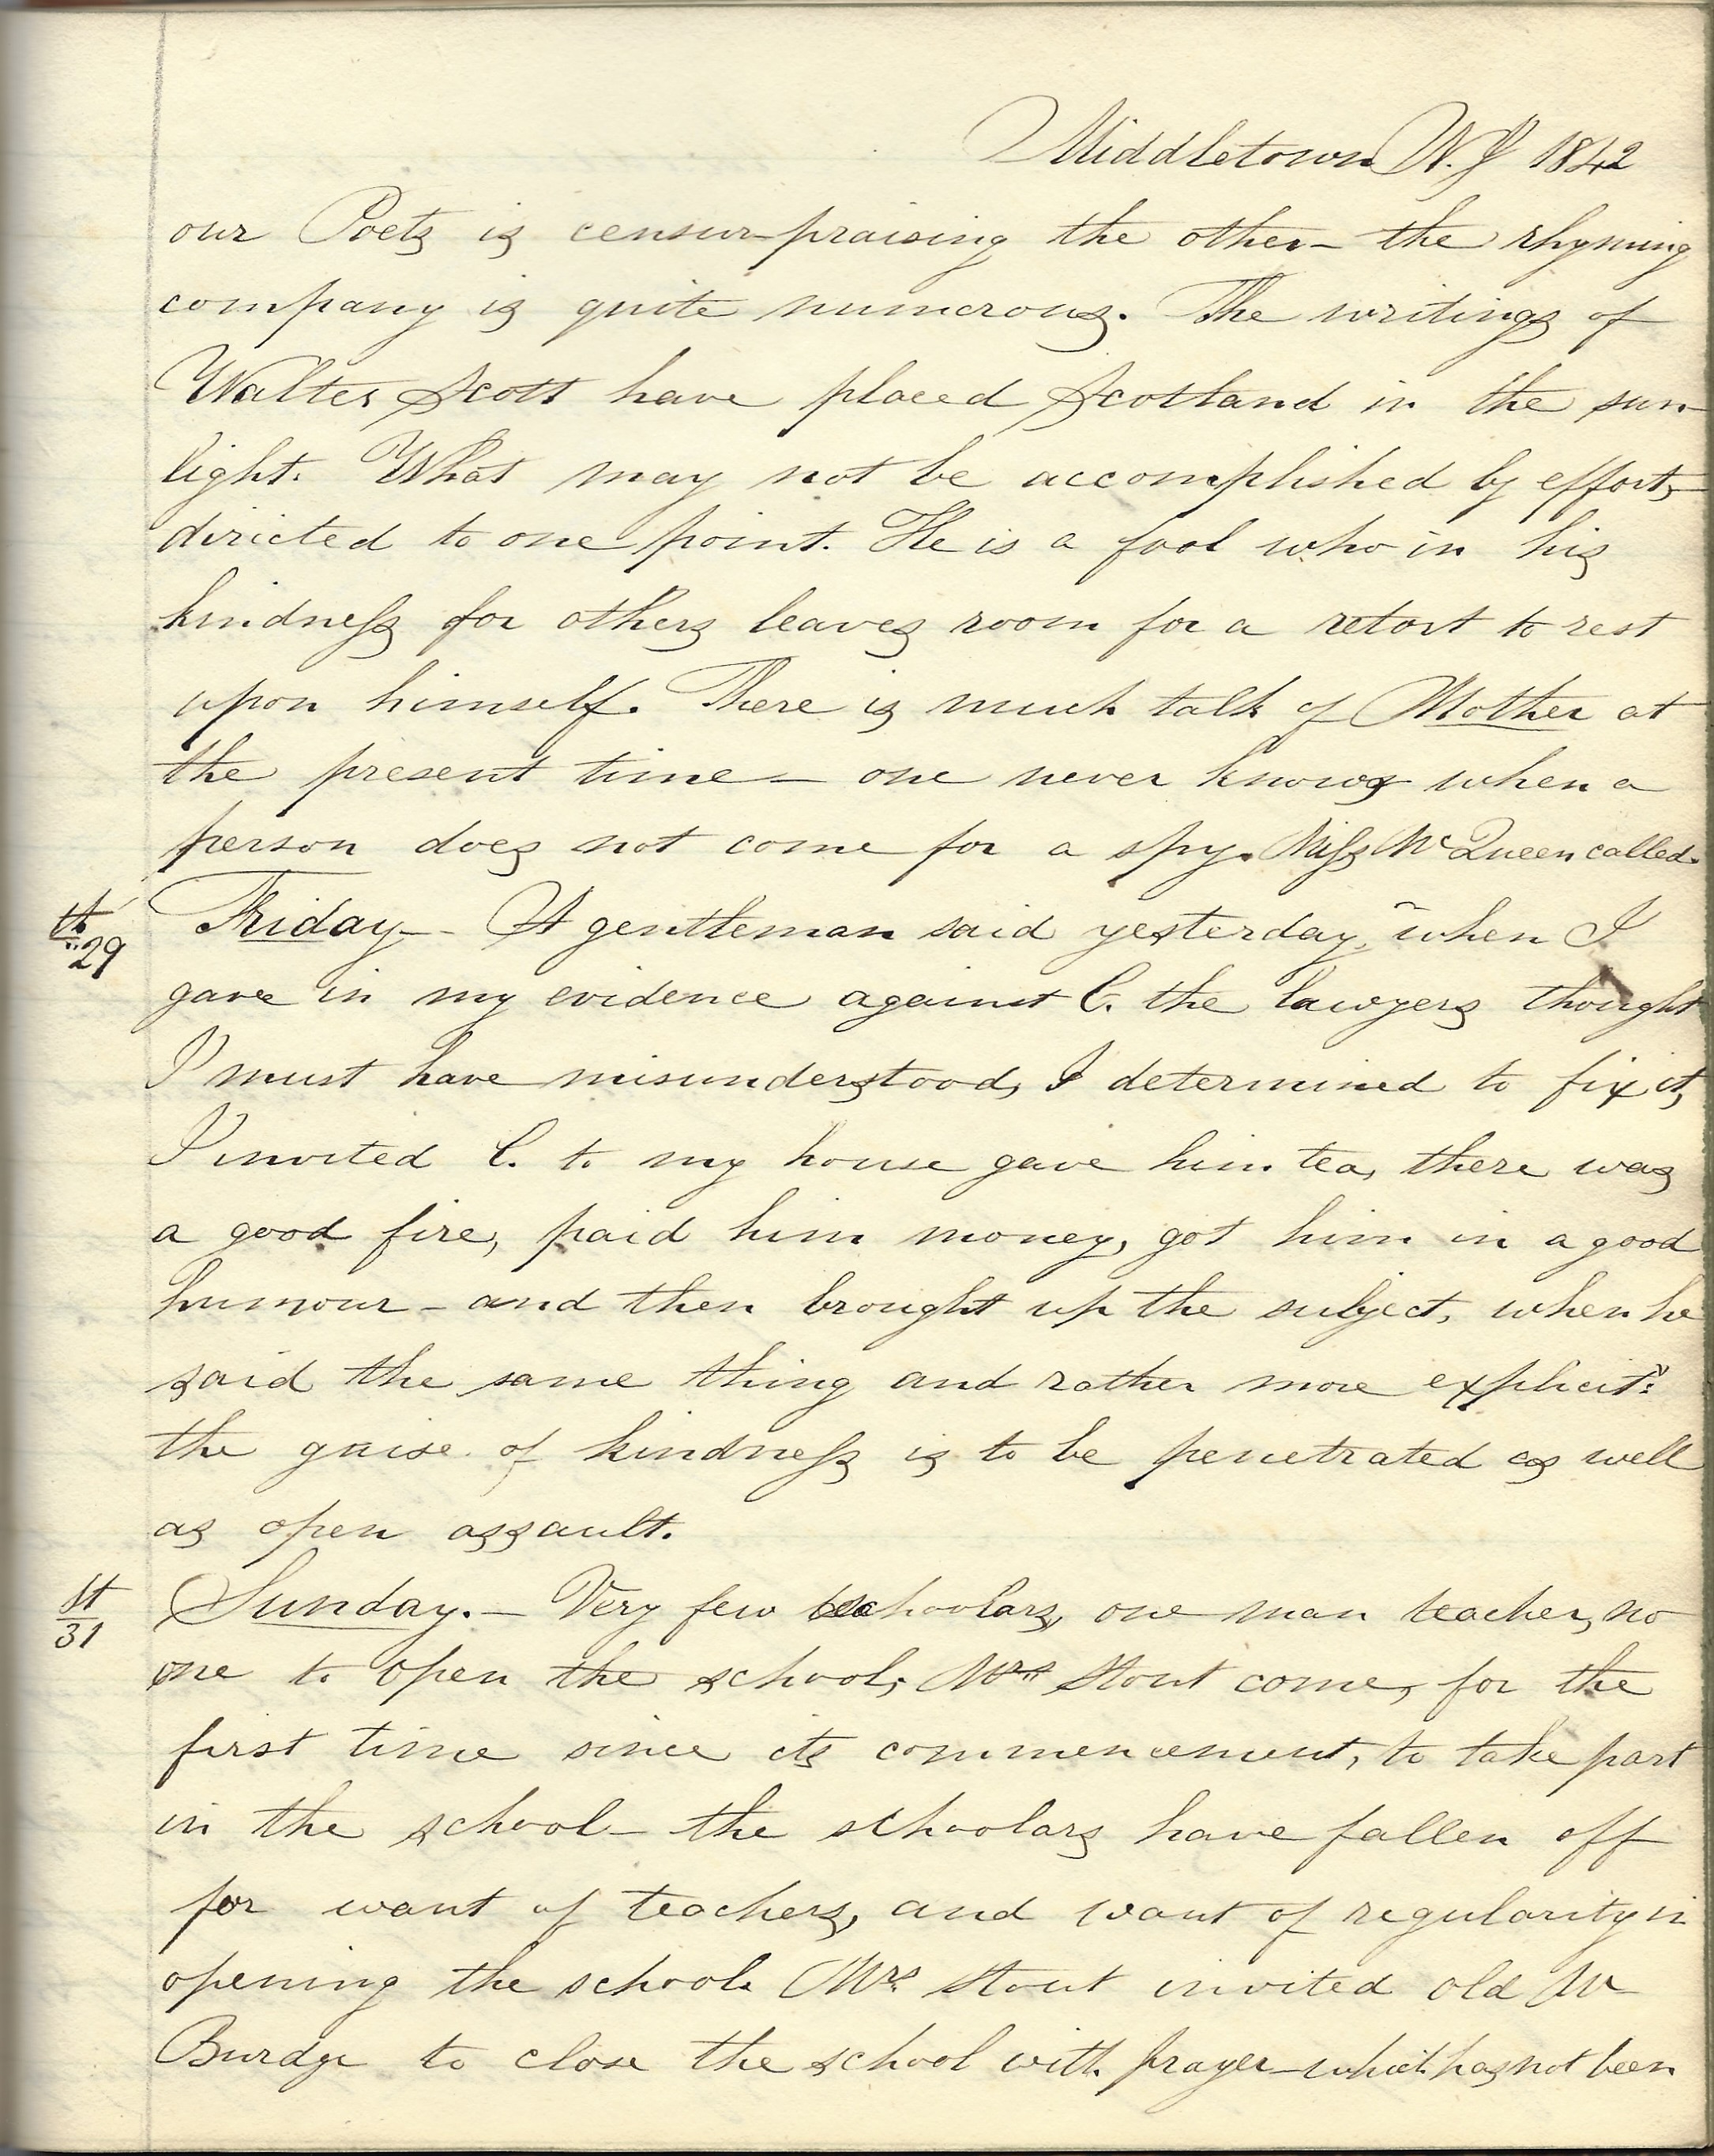 Middletown N. J 1842
our Poets is censur-praising the other - the rhyming
company is quite numerous. The writings of
Walter Scott have placed Scotland in the sun-
light. What may not be accomplished by effort,
diricted to one point. He is a fool who in his
kindness for others leaves room for a retort to rest
upon himself. There is much talk of Mother at
the present time - one never knows when a
person does not come for a spy. Miss McQueen called.
th 29 Friday - A gentleman said yesterday, "when I
gave in my evidence against C. the lawyers thought
I must have misunderstood, I determined to fix it,
I invited C. to my house gave him tea, there was
a good fire, paid him money, got him in a good
humour - and then brought up the subject, when he
said the same thing and rather more explicit":
the guise of kindness is to be penetrated as well
as open assault.
st 31 Sunday. - Very few schoolars, one man teacher, no
one to open the school, Mrs Stout come, for the
first time since its commencement, to take part
in the school - the schoolars have fallen off
for want of teachers, and want of regularity in
opening the school. Mrs Stout invited old Mr
Burdge to close the school with prayer - which has not been